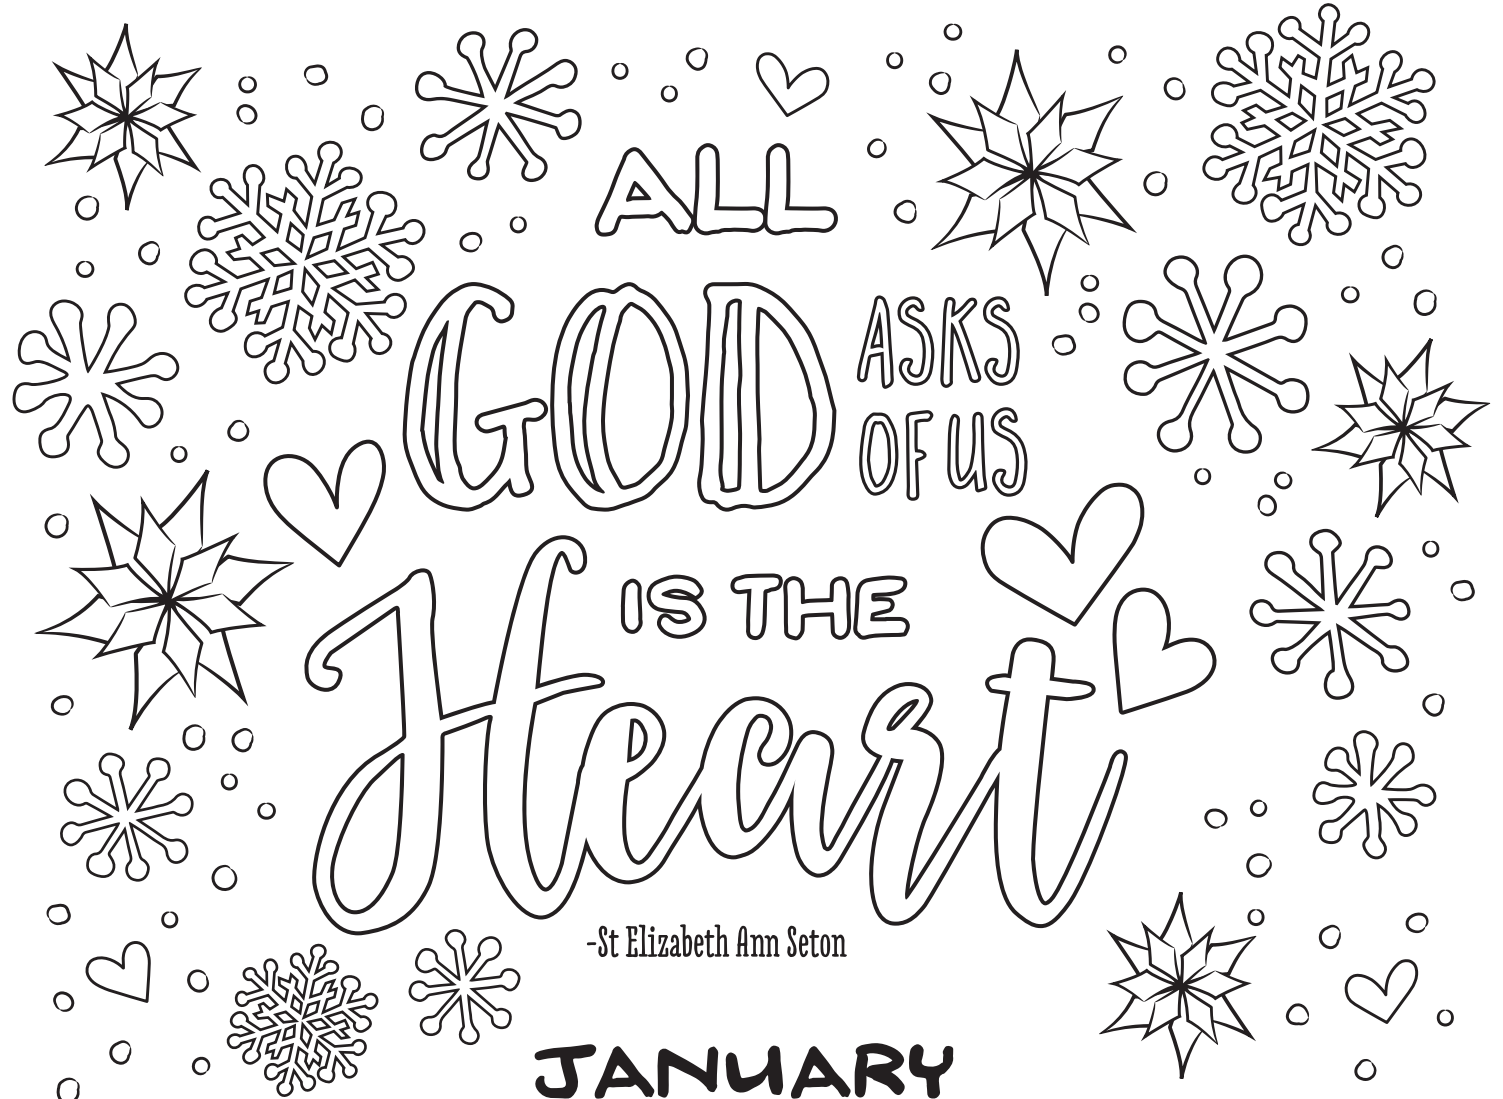 ALL
GOD ASKS
OF US
IS THE
Heart
-St Elizabeth Ann Seton
JANUARY